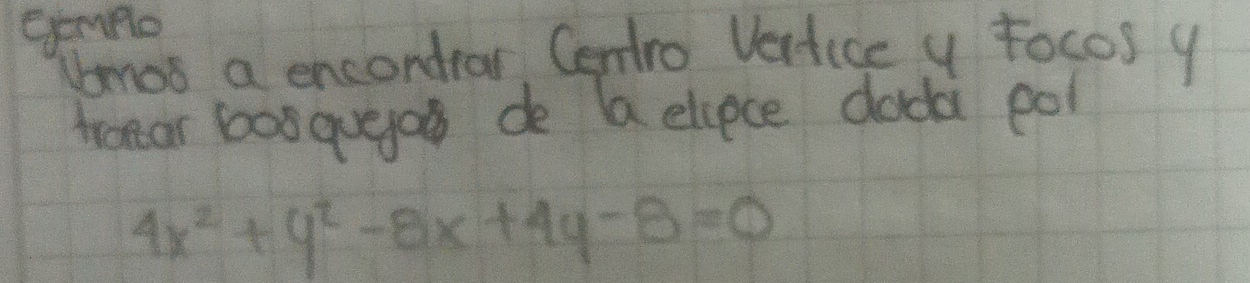 Ejemplo
Vamos a encontrar Centro Vertice y Focos y
trazar bosquejos de la elipce dada por
4x² + y² - 8x + 4y - 8 = 0